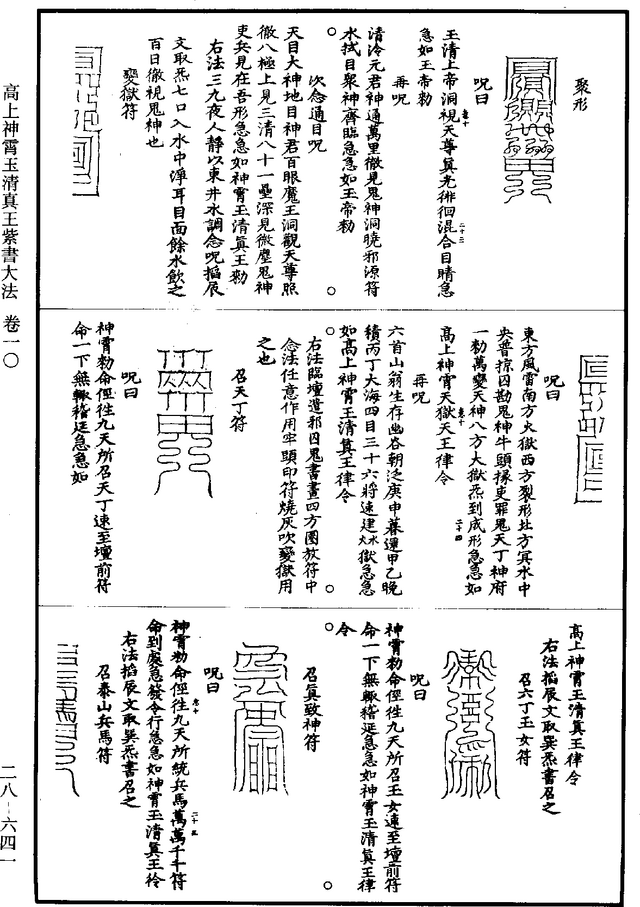 聚形
呪曰
玉清上帝洞視天尊真光徘徊混合目睛急
急如玉帝勅
再呪
清泠元君神通萬里徹見鬼神洞曉邪源符
水拭目衆神齊臨急急如玉帝勅
次念通目呪
天目大神地目神君百眼魔王洞觀天尊照
徹八極上見三清八十一壘深見微塵鬼神
吏兵見在吾形急急如神霄玉清真王勑
右法三九夜人靜以東井水調念呪掐辰
文取炁七口入水中淨耳目面餘水飲之
百日徹視鬼神也
變獄符
呪曰
東方風雷南方火獄西方裂形北方冥水中
央普掠囚勘鬼神牛頭掾吏罪鬼天丁神府
一勑萬變天神八方大獄炁到成形急急如
高上神霄天獄天王律令
再呪
六首山翁生存幽谷朝泛庚申暮還甲乙晚
積丙丁大海四目三十六將速建水火獄急急
如高上神霄玉清真王律令
右法臨壇遣邪囚鬼書畫四方圍放符中
念法任意作用牢頭印符燒灰吹變獄用
之也
召天丁符
呪曰
神霄勑命徑往九天所召天丁速至壇前符
命一下無輙稽延急急如
高上神霄玉清真王律令
右法掐辰文取巽炁書召之
召六丁玉女符
呪曰
神霄勑命徑往九天所召玉女速至壇前符
命一下無輙稽延急急如神霄玉清真王律
令
召真致神符
呪曰
神霄勑命徑往九天所統兵馬萬萬千千符
命到處急發令行急急如神霄玉清真王律令
右法掐辰文取巽炁書召之
召泰山兵馬符
高上神霄玉清真王紫書大法 卷一〇
二八-六四一